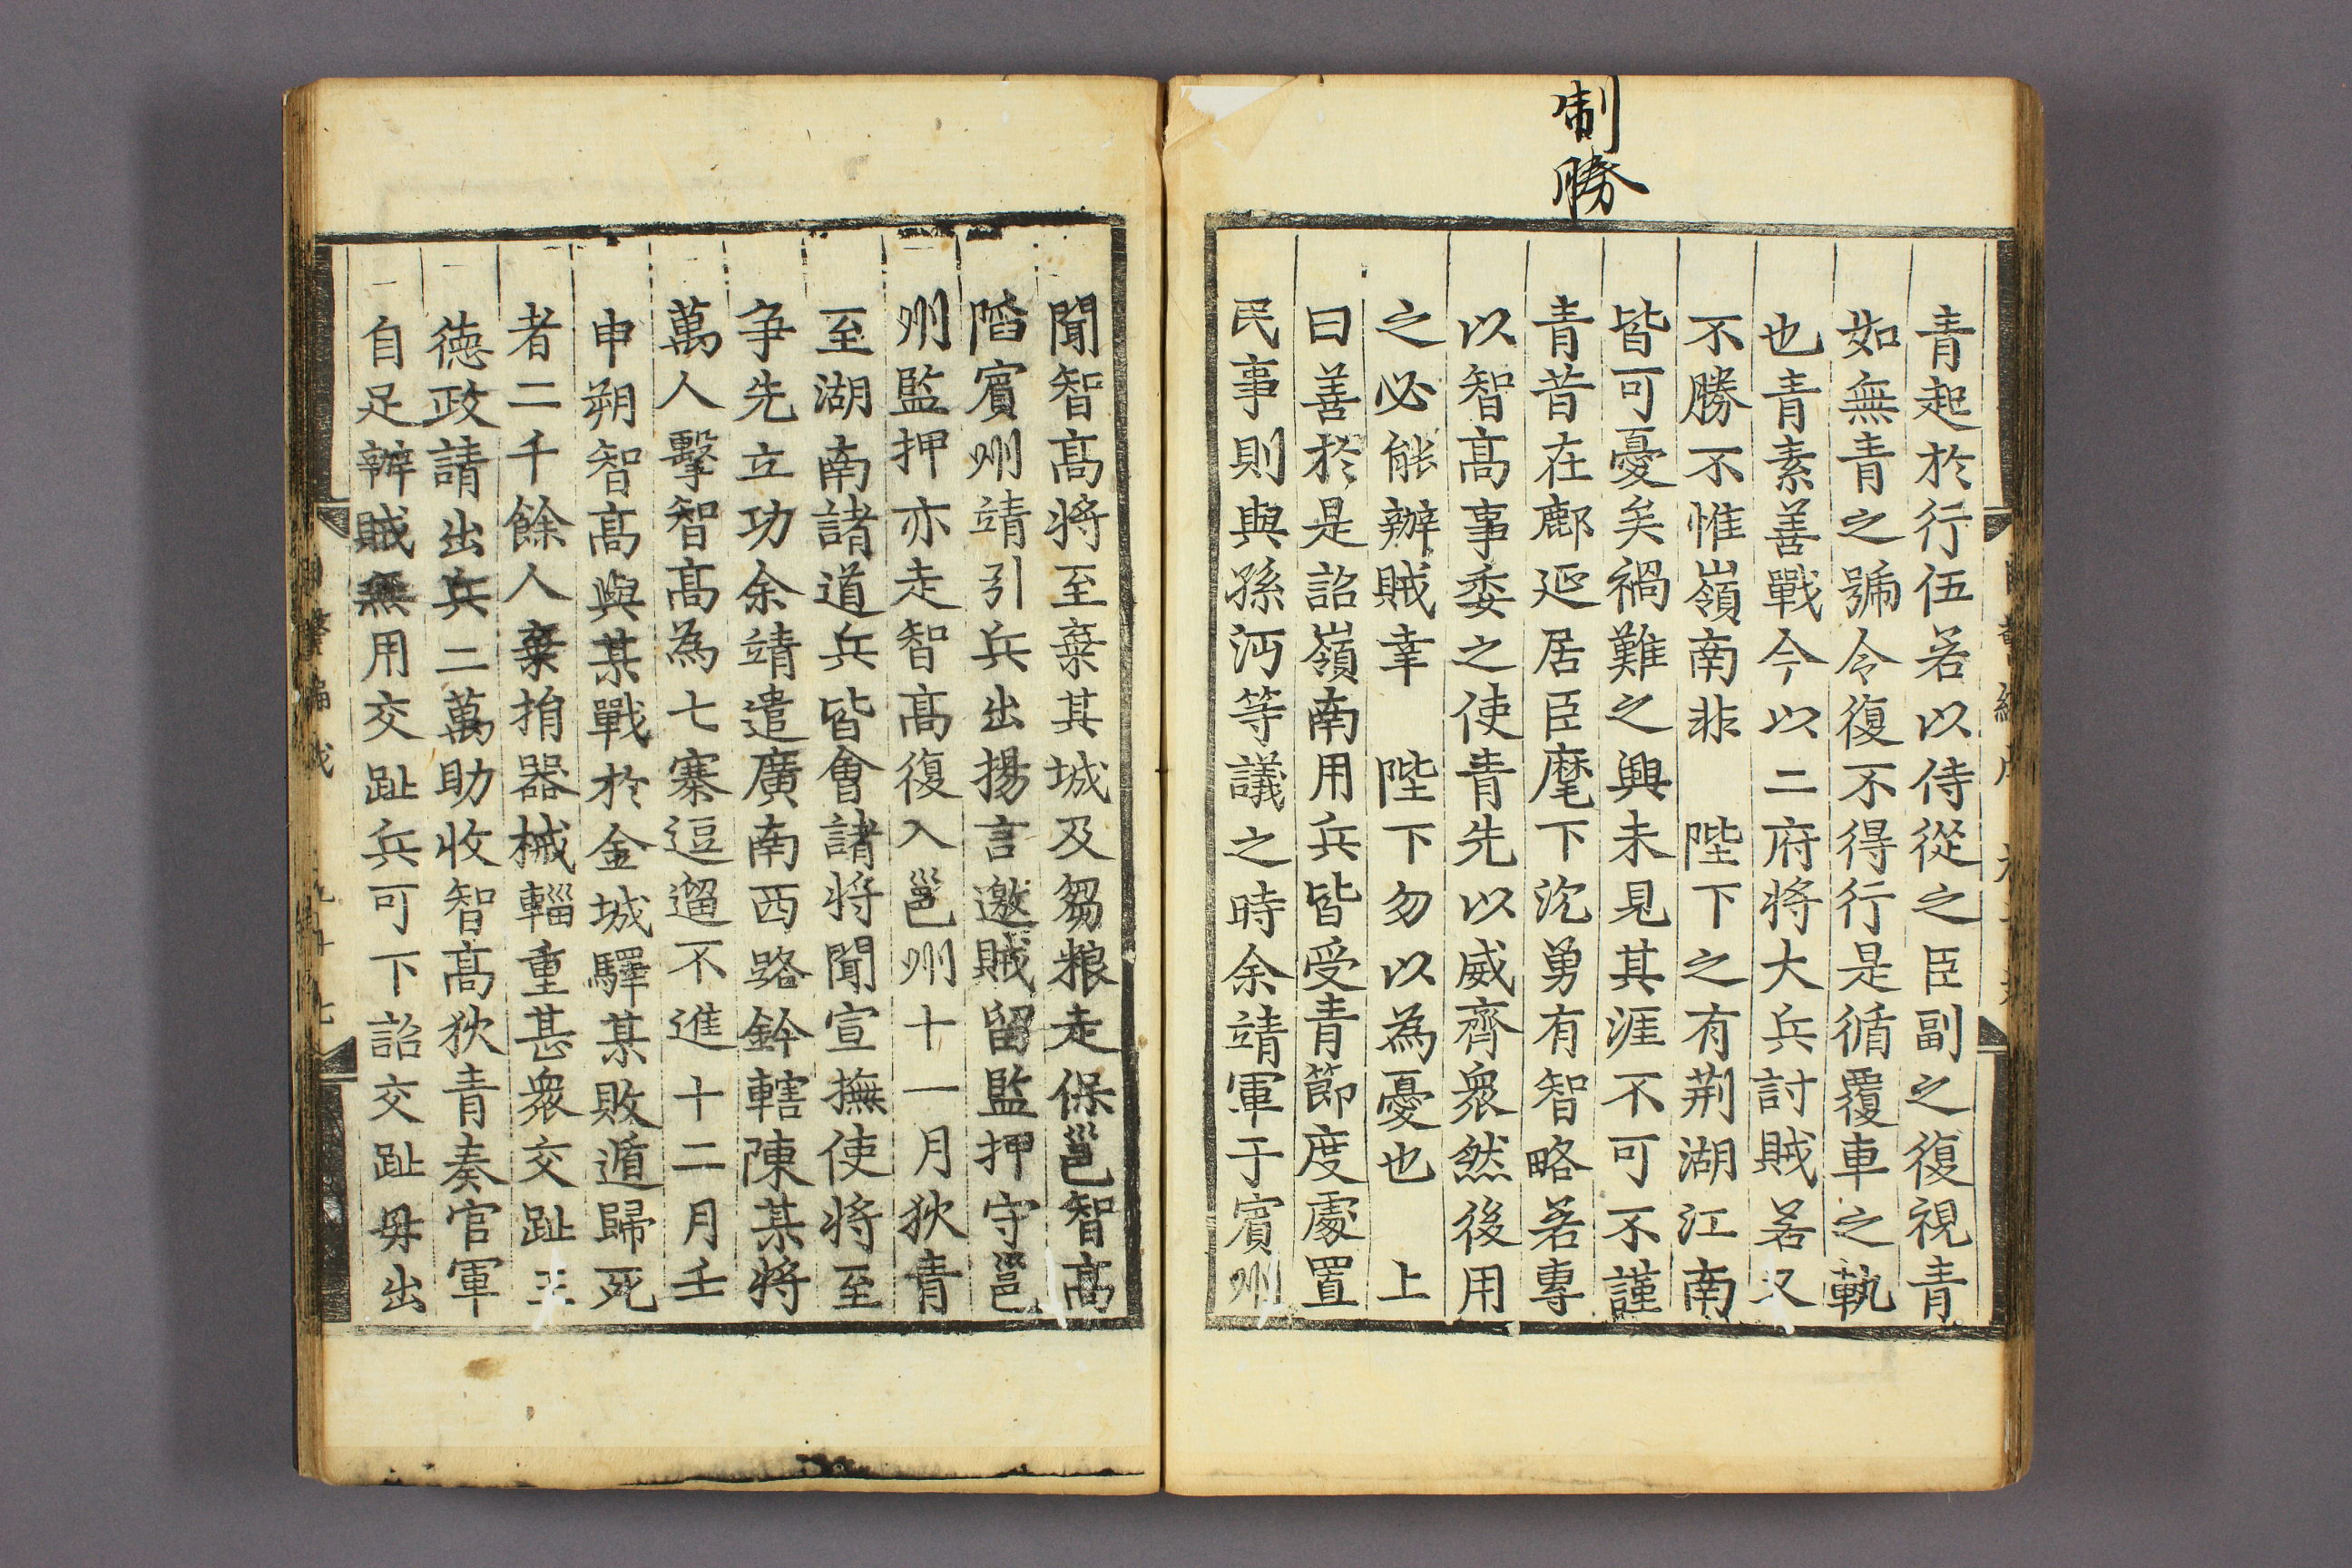 制勝
青起於行伍若以侍從之臣副之復視青
如無青之號令復不得行是循覆車之軌
也青素善戰今以二府將大兵討賊若又
不勝不惟嶺南非 陛下之有荆湖江南
皆可憂矣禍難之興未見其涯不可不謹
青昔在鄜延居臣麾下沈勇有智略若專
以智高事委之使青先以威齊衆然後用
之必能辦賊幸 陛下勿以為憂也 上
曰善於是詔嶺南用兵皆受青節度處置
民事則與孫沔等議之時余靖軍于賓州
聞智高將至棄其城及芻粮走保邕智高
陷賓州靖引兵出揚言邀賊留監押守邕
州監押亦走智高復入邕州十一月狄青
至湖南諸道兵皆會諸將聞宣撫使將至
争先立功余靖遣廣南西路鈐轄陳某將
萬人擊智高為七寨逗遛不進十二月壬
申朔智高與某戰於金城驛某敗遁歸死
者二千餘人棄捐器械輜重甚衆交趾王
德政請出兵二萬助收智高狄青奏官軍
自足辦賊無用交趾兵可下詔交趾毋出